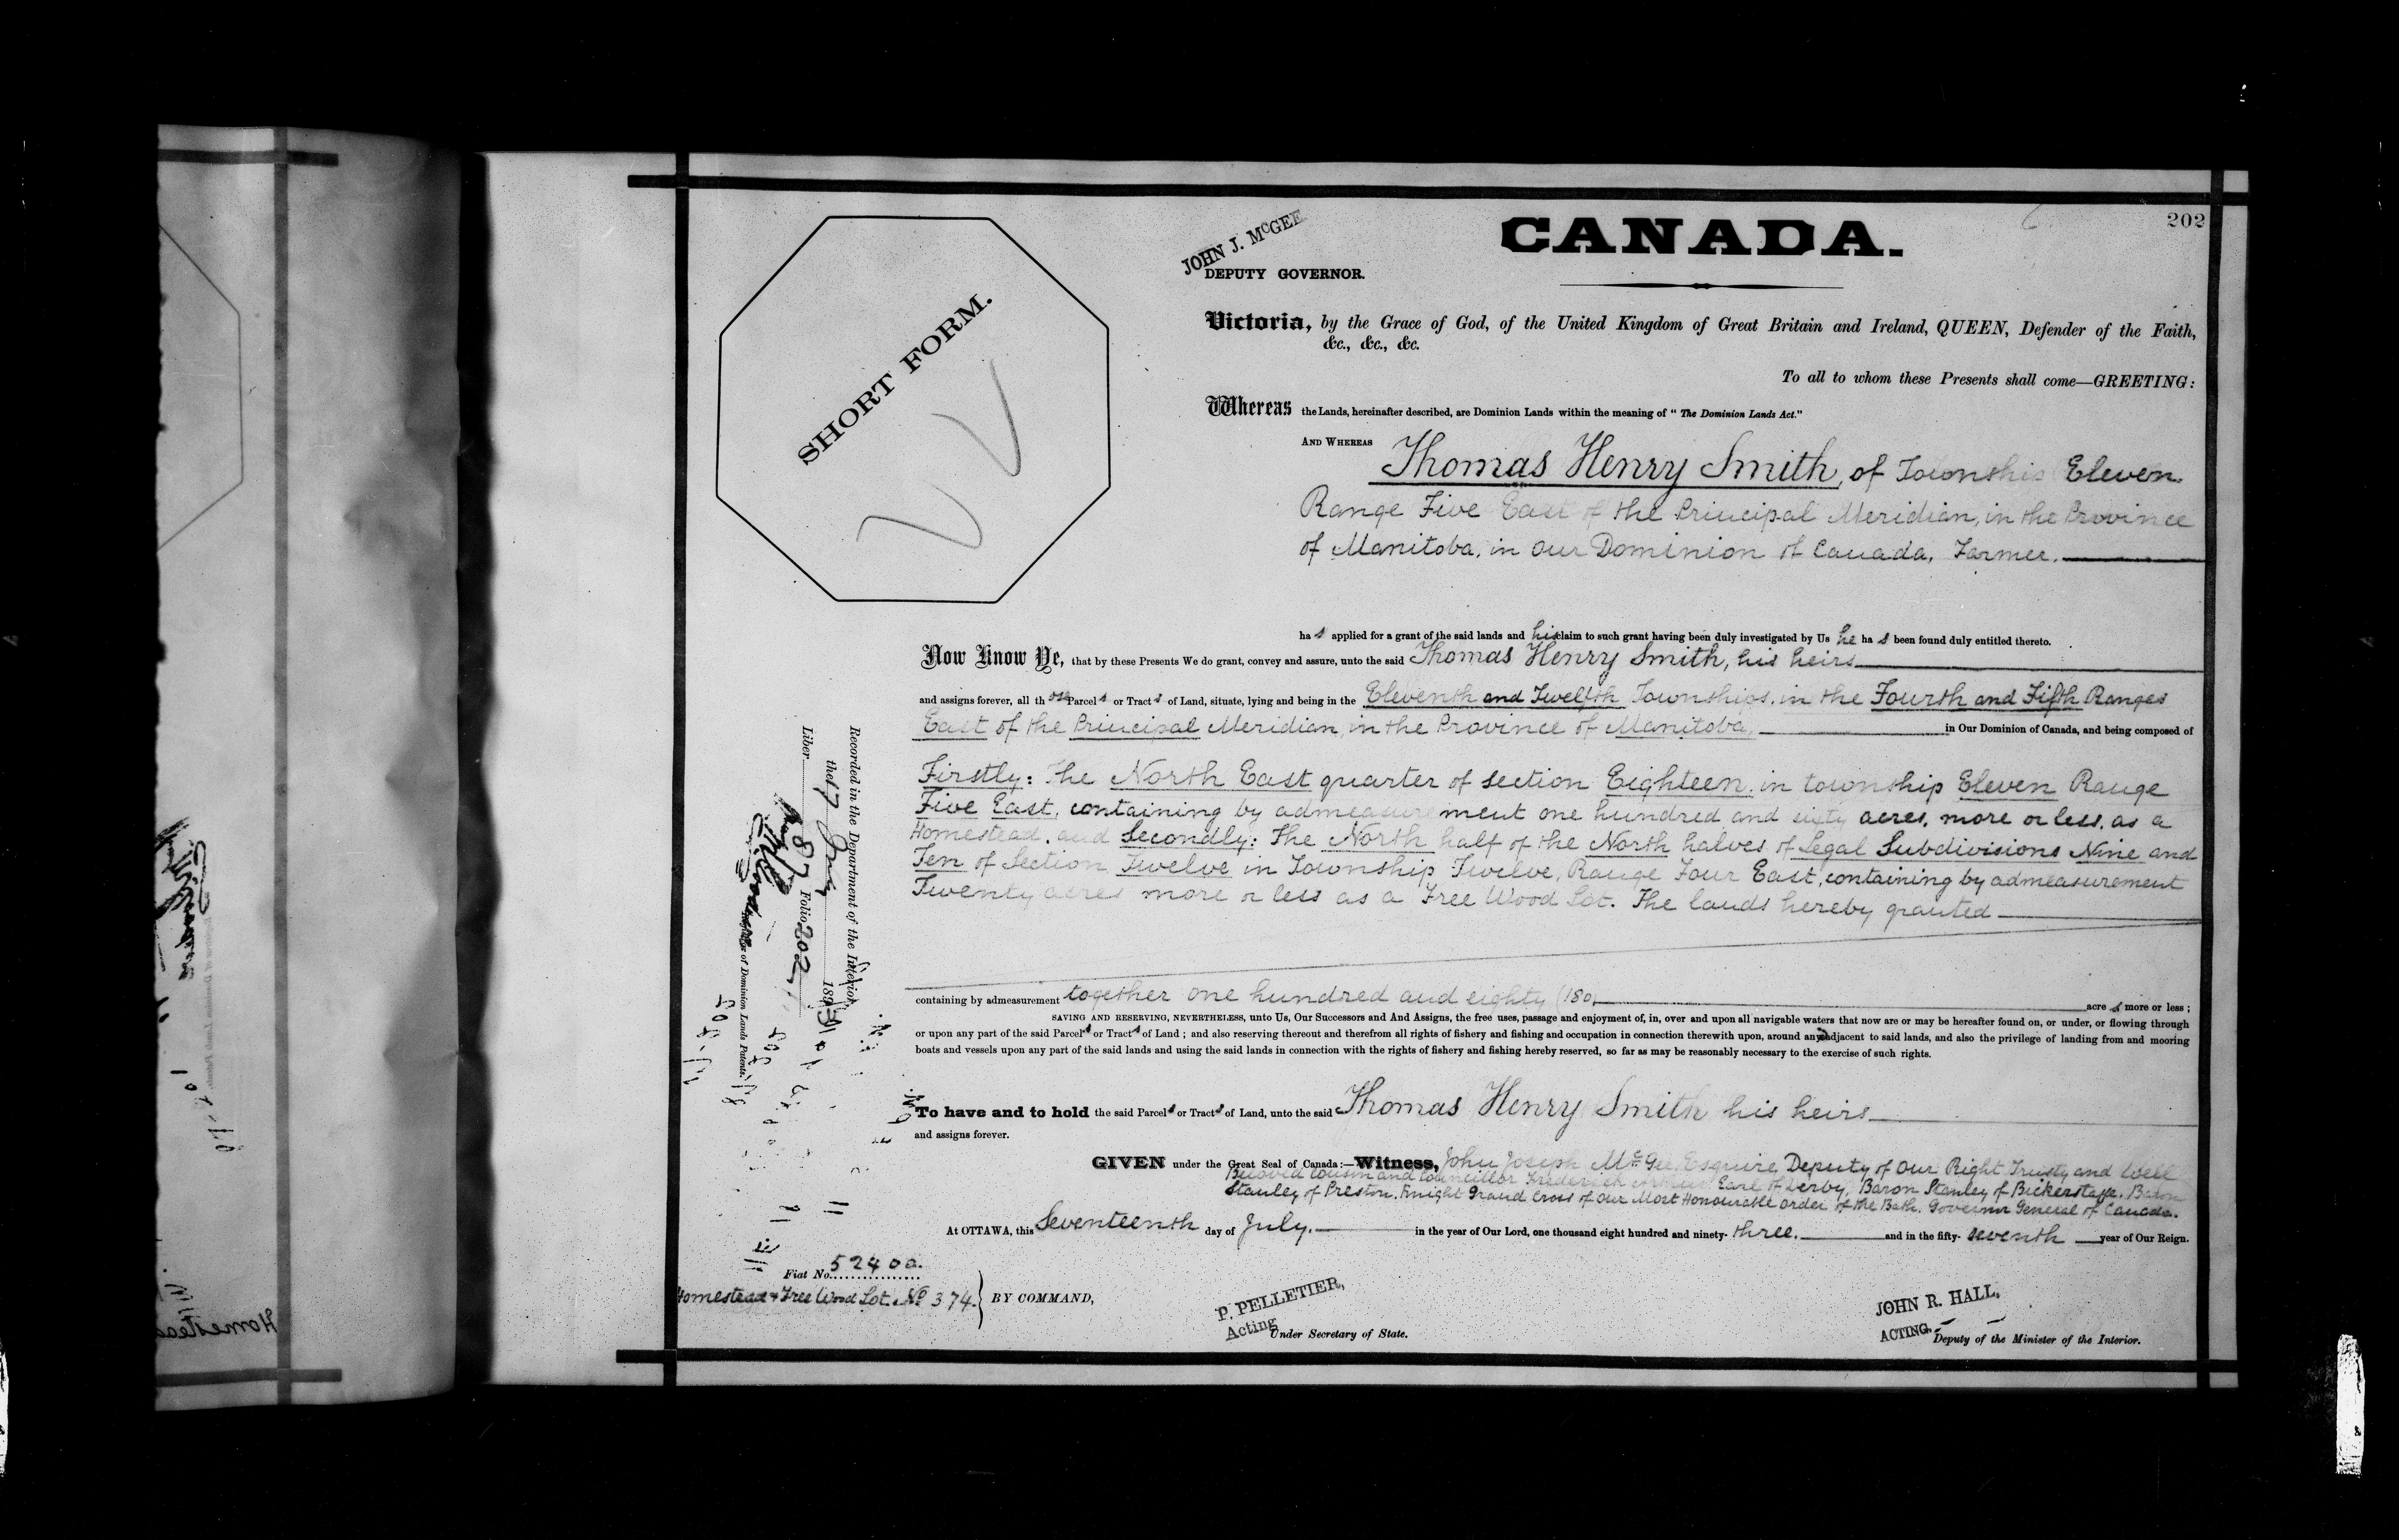 202
CANADA.
JOHN J. McGEE
DEPUTY GOVERNOR.
SHORT FORM.
Victoria, by the Grace of God, of the United Kingdom of Great Britain and Ireland, QUEEN, Defender of the Faith,
&c., &c., &c.
To all to whom these Presents shall come—GREETING:
Whereas the Lands, hereinafter described, are Dominion Lands within the meaning of "The Dominion Lands Act."
AND WHEREAS
Thomas Henry Smith, of Township Eleven
Range Five East of the Principal Meridian, in the Province
of Manitoba, in Our Dominion of Canada, Farmer.
ha s applied for a grant of the said lands and his claim to such grant having been duly investigated by Us he ha s been found duly entitled thereto.
Now Know Ye, that by these Presents We do grant, convey and assure, unto the said Thomas Henry Smith, his heirs
and assigns forever, all th ose Parcel s or Tract s of Land, situate, lying and being in the Eleventh and Twelfth Townships, in the Fourth and Fifth Ranges
East of the Principal Meridian, in the Province of Manitoba, in Our Dominion of Canada, and being composed of
Firstly: The North East quarter of section Eighteen in township Eleven Range
Five East, containing by admeasurement one hundred and sixty acres, more or less, as a
Homestead, and Secondly: The North half of the North halves of Legal Subdivisions Nine and
Ten of Section Twelve in Township Twelve, Range Four East, containing by admeasurement
Twenty acres more or less as a Free Wood Lot. The lands hereby granted
containing by admeasurement together one hundred and eighty (180 acre s more or less;
SAVING AND RESERVING, NEVERTHELESS, unto Us, Our Successors and And Assigns, the free uses, passage and enjoyment of, in, over and upon all navigable waters that now are or may be hereafter found on, or under, or flowing through
or upon any part of the said Parcel s or Tract s of Land; and also reserving thereout and therefrom all rights of fishery and fishing and occupation in connection therewith upon, around and adjacent to said lands, and also the privilege of landing from and mooring
boats and vessels upon any part of the said lands and using the said lands in connection with the rights of fishery and fishing hereby reserved, so far as may be reasonably necessary to the exercise of such rights.
To have and to hold the said Parcel s or Tract s of Land, unto the said Thomas Henry Smith his heirs
and assigns forever.
GIVEN under the Great Seal of Canada:—Witness, John Joseph McGee, Esquire, Deputy of Our Right Trusty and Well
Beloved Cousin and Councillor Frederick Arthur Earl of Derby, Baron Stanley of Bickerstaffe, Baron
Stanley of Preston, Knight Grand Cross of Our Most Honourable Order of the Bath, Governor General of Canada.
At OTTAWA, this Seventeenth day of July. in the year of Our Lord, one thousand eight hundred and ninety- three. and in the fifty- seventh year of Our Reign.
Fiat No. 52400.
Homestead & Free Wood Lot. No 374.
BY COMMAND,
P. PELLETIER,
Acting
Under Secretary of State.
JOHN R. HALL,
ACTING
Deputy of the Minister of the Interior.
Recorded in the Department of the Interior,
the 17 July 1893
Liber 87 Folio 202
of Dominion Lands Patents.
Homestead